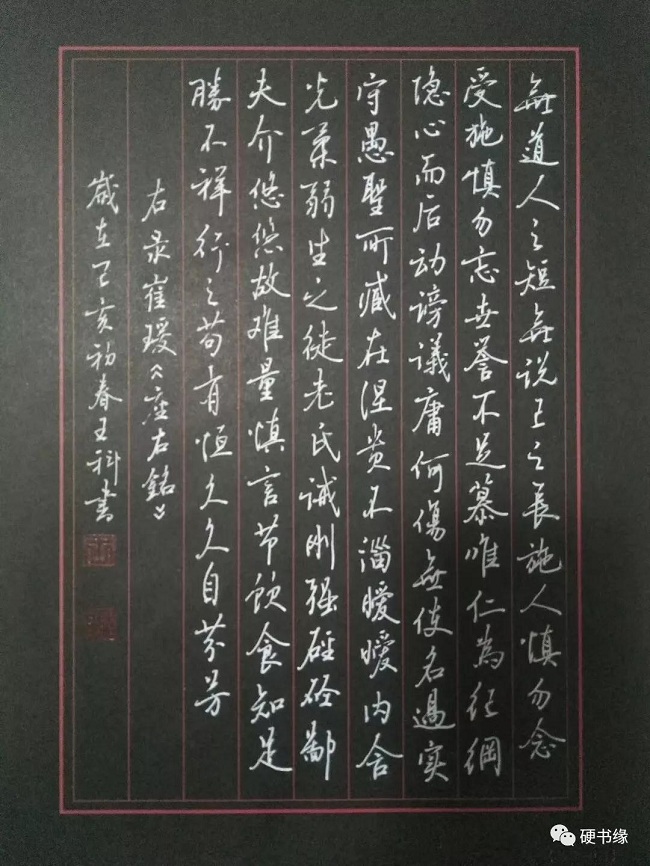 無道人之短無说己之長施人慎勿念
受施慎勿忘世誉不足慕唯仁為纪綱
隐心而后动谤議庸何傷無使名過实
守愚聖所臧在涅贵不淄曖曖内含
光柔弱生之徒老氏诫刚强硜硜鄙
夫介悠悠故难量慎言节饮食知足
勝不祥行之苟有恒久久自芬芳
右录崔瑗《座右銘》
歲在己亥初春王科書
硬书缘